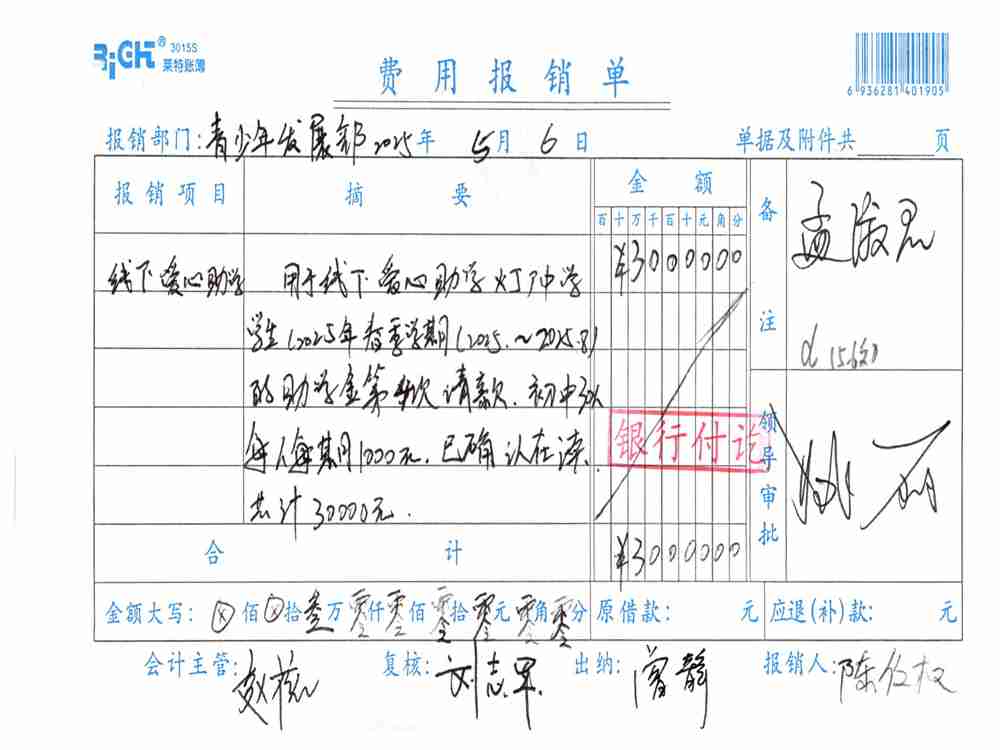 RiCH® 3015S
莱特账簿
费用报销单
6 936281 401905
报销部门:青少年发展部 2025年 5月 6日 单据及附件共 页
报销项目 摘要 金额 备注
百十万千百十元角分
线下爱心助学 用于线下爱心助学 中学 ¥3000000
学生(2025年春季学期(2025. ~2025.8)
的助学金第 次请款.初中
每人每期1000元.已确认在读.
银行付讫
共计30000元.
领导审批
合计 ¥3000000
金额大写: ⊗佰⊗拾叁万零仟零佰零拾零元零角零分 原借款: 元 应退(补)款: 元
会计主管: 复核:刘志军 出纳:曾静 报销人:陈